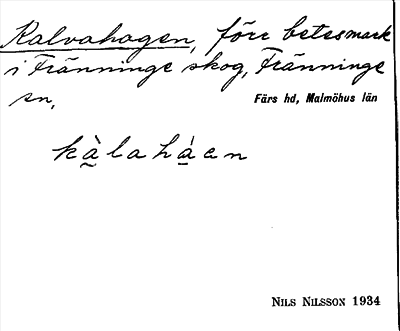 Kalvahagen, förr betesmark
i Fränninge skog, Fränninge
sn,
Färs hd, Malmöhus län
kàlaháen
NILS NILSSON 1934